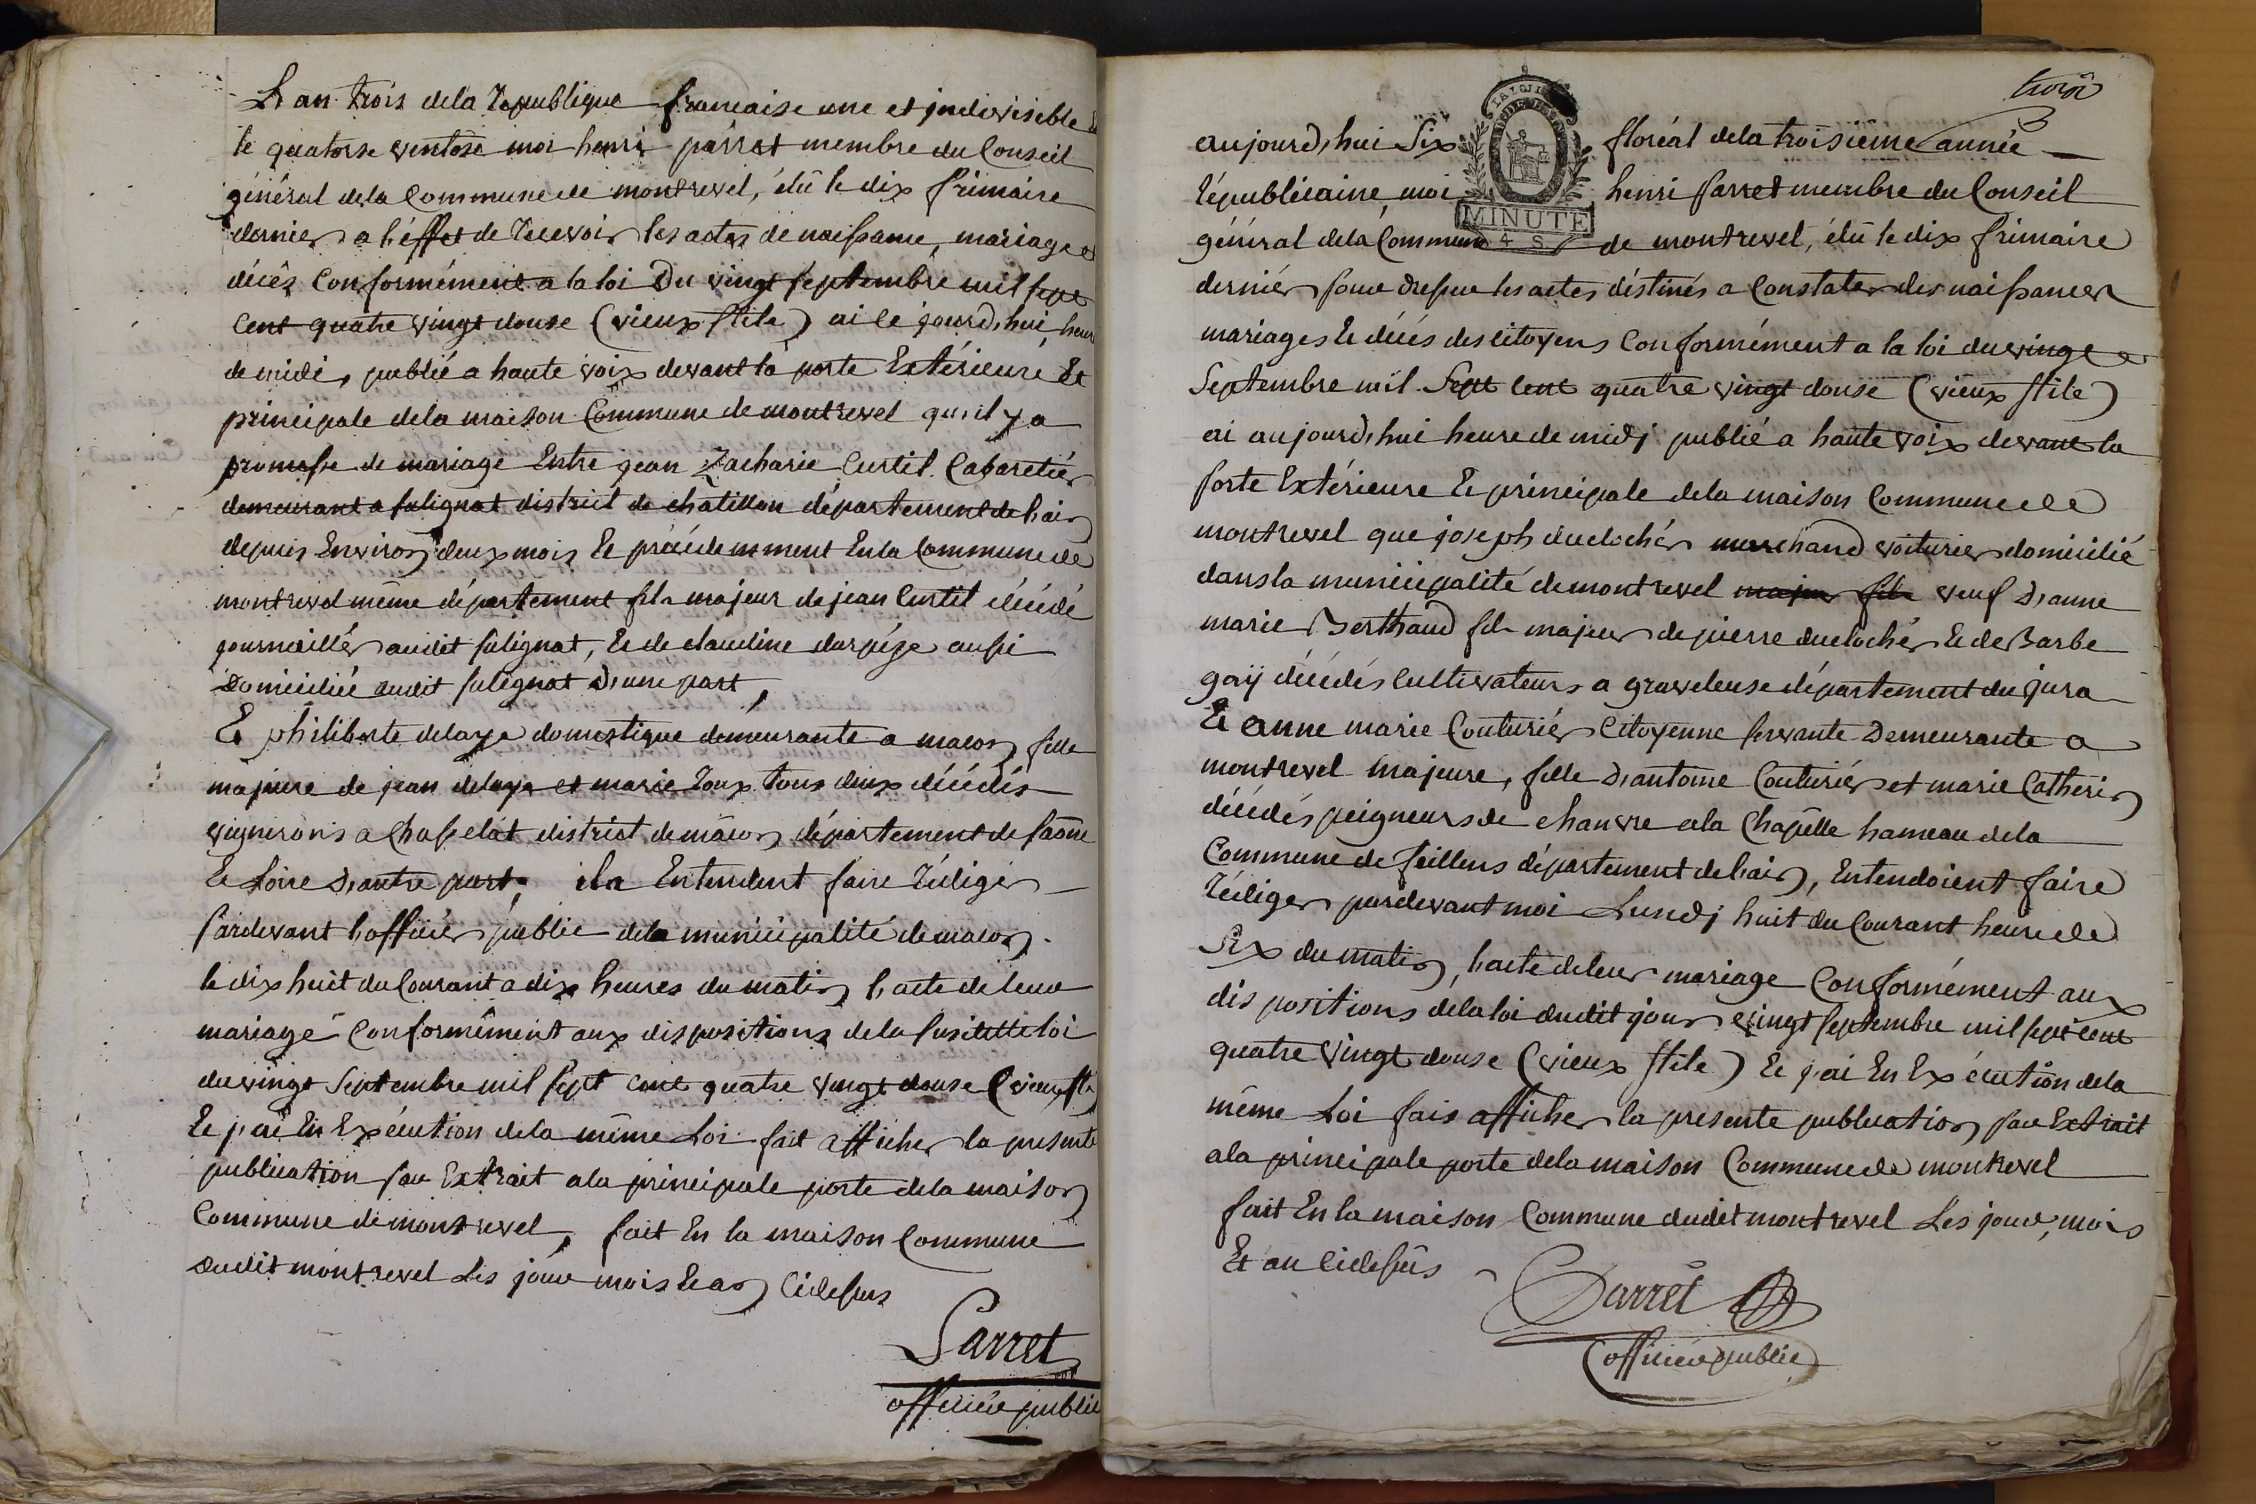 L'an trois de la République francaise une et jndivisible &
le quatorse ventose moi henri parret membre du Conseil
général de la Commune de montrevel, élû le dix frimaire
dernier a l'éffet de Recevoir les actes de naissance, mariage et
décès Conformément a la loi Du vingt septembre mil sept
Cent quatre vingt douse (vieux stile) ai ce jourd'hui, heure
de midi, publié a haute voix devant la porte Extérieure Et
principale de la maison Commune de montrevel qu'il y a
promesse de mariage Entre jean Zacharie Curtil Cabaretiér
demeurant a salignat district de chatillon département de l'ain
depuis Environ deux mois Et précédemment En la Commune de
montrevel même département fils majeur de jean Curtil décédé
journaillér audit salignat, Et de claudine aussi
Domiciliée audit salignat D'une part,
Et philiberte delaye domestique demeurante a macon fille
majeure de jean delaye et marie Roux tous deux décédés
vignerons a Chasselat district de mâcon département de saône
Et Loire D'autre part; ils Entendent faire Rédiger
Pardevant l'officiér public de la municipalité de macon
le dix huit du Courant a dix heures du matin l'acte de leur
mariage Conformêment aux dispositions de la susditte loi
du vingt Septembre mil sept cent quatre vingt douse (vieux stile)
Et j'ai En Exécution de la même Loi fait afficher la presente
publication par Extrait a la principale porte de la maison
Commune de montrevel, fait En la maison Commune
dudit montrevel Les jour mois Et an Cidessus
Parret
officier public
trois
aujourd'hui Six floréal de la troisième année
LA LOI
républicaine, moi henri Parret membre du Conseil
MINUTE
général de la Commune de montrevel, élû le dix frimaire
4 S
dernier pour dresser les actes déstinés a Constater les naissances
mariages Et décés des citoyens Conformément a la loi du vingt
Septembre mil Sept Cent quatre vingt douse (vieux stile)
ai aujourd'hui heure de midj publié a haute voix devant la
Porte Extérieure Et principale de la maison Commune de
montrevel que joseph duclochér marchand voiturier domicilié
dans la municipalité de montrevel majeur fils veuf D'anne
marie Berthaud fils majeur de pierre duclochér Et de Barbe
gaÿ décédés Cultivateurs a graveleuse département du jura
Et anne marie Couturiér Citoyenne servante Demeurante a
montrevel majeure, fille D'antoine Couturiér et marie Catherin
décédés peigneurs de chanvre a la Chapelle hameau de la
Commune de feillens département de l'ain, Entendoient faire
Rédiger pardevant moi Lundj huit du Courant heure de
Six du matin, l'acte de leur mariage Conformément aux
dispositions de la loi dudit jour vingt septembre mil sept cent
quatre vingt douse (vieux stile) Et j'ai En Exécution de la
même Loi fais afficher la presente publication par Extrait
a la principale porte de la maison Commune de montrevel
fait En la maison Commune dudit montrevel Les jour, mois
Et an Cidessus
Parret
officier public